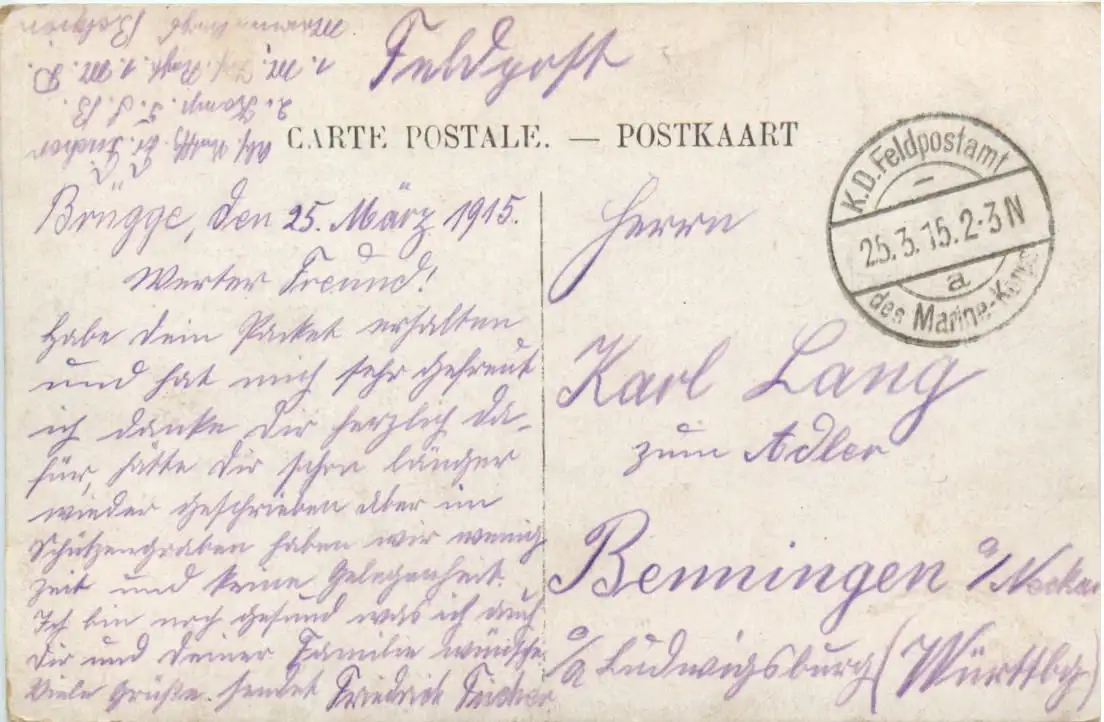 Feldpost
CARTE POSTALE. — POSTKAART
K.D. Feldpostamt
25.3.15.2-3N
a
des Marine-Korps
Brügge, den 25. März 1915.
Werter Freund!
Habe dein Packet erhalten
und hat mich sehr gefreut
ich danke Dir herzlich da-
für, hätte Dir schon länger
wieder geschrieben aber im
Schützengraben haben wir wenig
Zeit und keine Gelegenheit.
Ich bin noch gesund was ich auch
Dir und deiner Familie wünsche
Viele Grüße sendet Friedrich
Herrn
Karl Lang
zum Adler
Benningen a/Neckar
o/a Ludwigsburg (Württbg)
2. Komp.
1. M. 1. M. D.